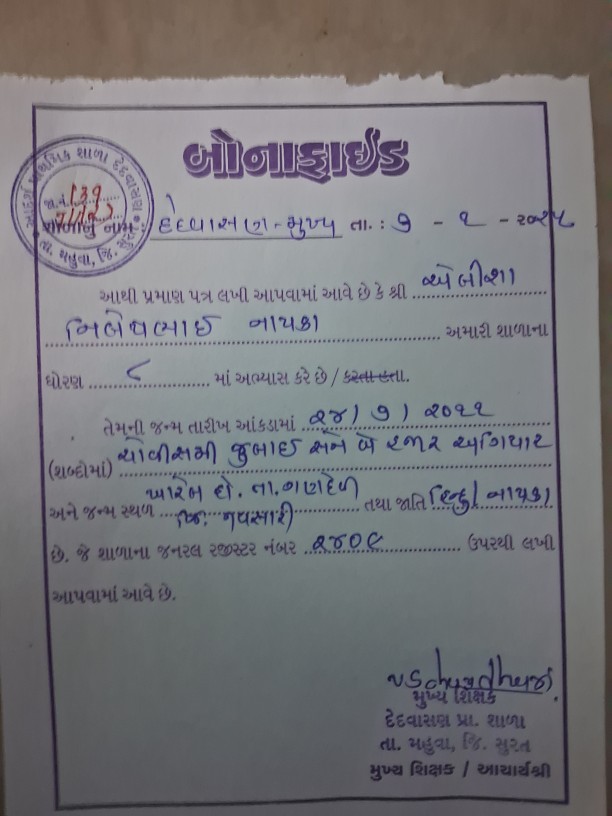 બોનાફાઈડ
આદર્શ પ્રાથમિક શાળા દેદવાસણ
જા.નં. 139
તા. મહુવા, જિ. સુરત
શાળાનું નામ દેદવાસણ-મુખ્ય તા. : ૭ - ૧ - ૨૦૨૫
આથી પ્રમાણ પત્ર લખી આપવામાં આવે છે કે શ્રી એલીશા
નિલેષભાઈ નાયકા અમારી શાળાના
ધોરણ ૮ માં અભ્યાસ કરે છે / કરતા હતા.
તેમની જન્મ તારીખ આંકડામાં ૨૪/૭/૨૦૧૧
(શબ્દોમાં) ચોવીસમી જુલાઈ સને બે હજાર અગિયાર
અને જન્મ સ્થળ ખારેલ હો. તા. ગણદેવી તથા જાતિ હિન્દુ નાયકા
જિ. નવસારી
છે. જે શાળાના જનરલ રજીસ્ટર નંબર ૨૪૦૯ ઉપરથી લખી
આપવામાં આવે છે.
મુખ્ય શિક્ષક
દેદવાસણ પ્રા. શાળા
તા. મહુવા, જિ. સુરત
મુખ્ય શિક્ષક / આચાર્યશ્રી